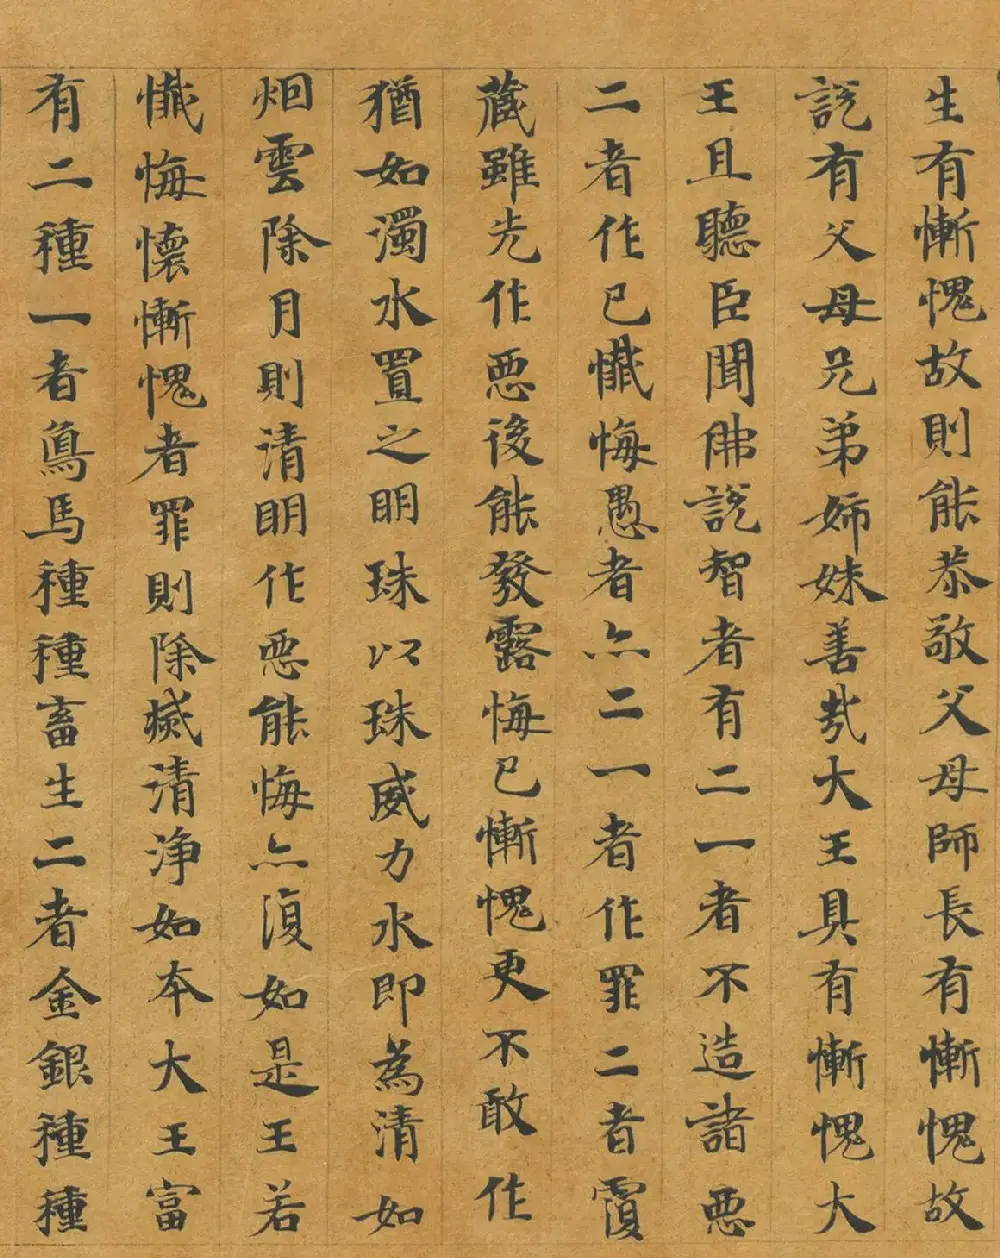 生有慚愧故則能恭敬父母師長有慚愧故
說有父母兄弟姉妹善哉大王具有慚愧大
王且聽臣聞佛說智者有二一者不造諸惡
二者作已懺悔愚者亦二一者作罪二者覆
藏雖先作惡後能發露悔已慚愧更不敢作
猶如濁水置之明珠以珠威力水即為清如
烟雲除月則清明作惡能悔亦復如是王若
懺悔懷慚愧者罪則除滅清淨如本大王富
有二種一者鳥馬種種畜生二者金銀種種